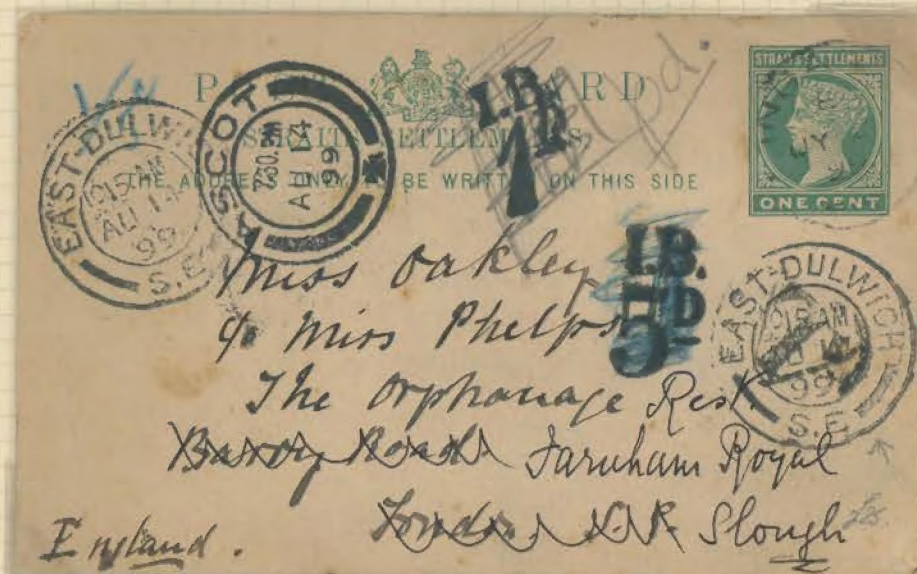 POST CARD
STRAITS SETTLEMENTS
THE ADDRESS ONLY TO BE WRITTEN ON THIS SIDE
STRAITS SETTLEMENTS
ONE CENT
EAST-DULWICH
1015 AM
AU 14
99
S.E
ASCOT
7.30 PM
AU 14
99
I.B.
1D
I.B.
5D
EAST-DULWICH
1015 AM
AU 14
99
S.E
Miss Oakley
c/o Miss Phelps
The Orphanage Rest.
Road Farnham Royal
London Slough
England.